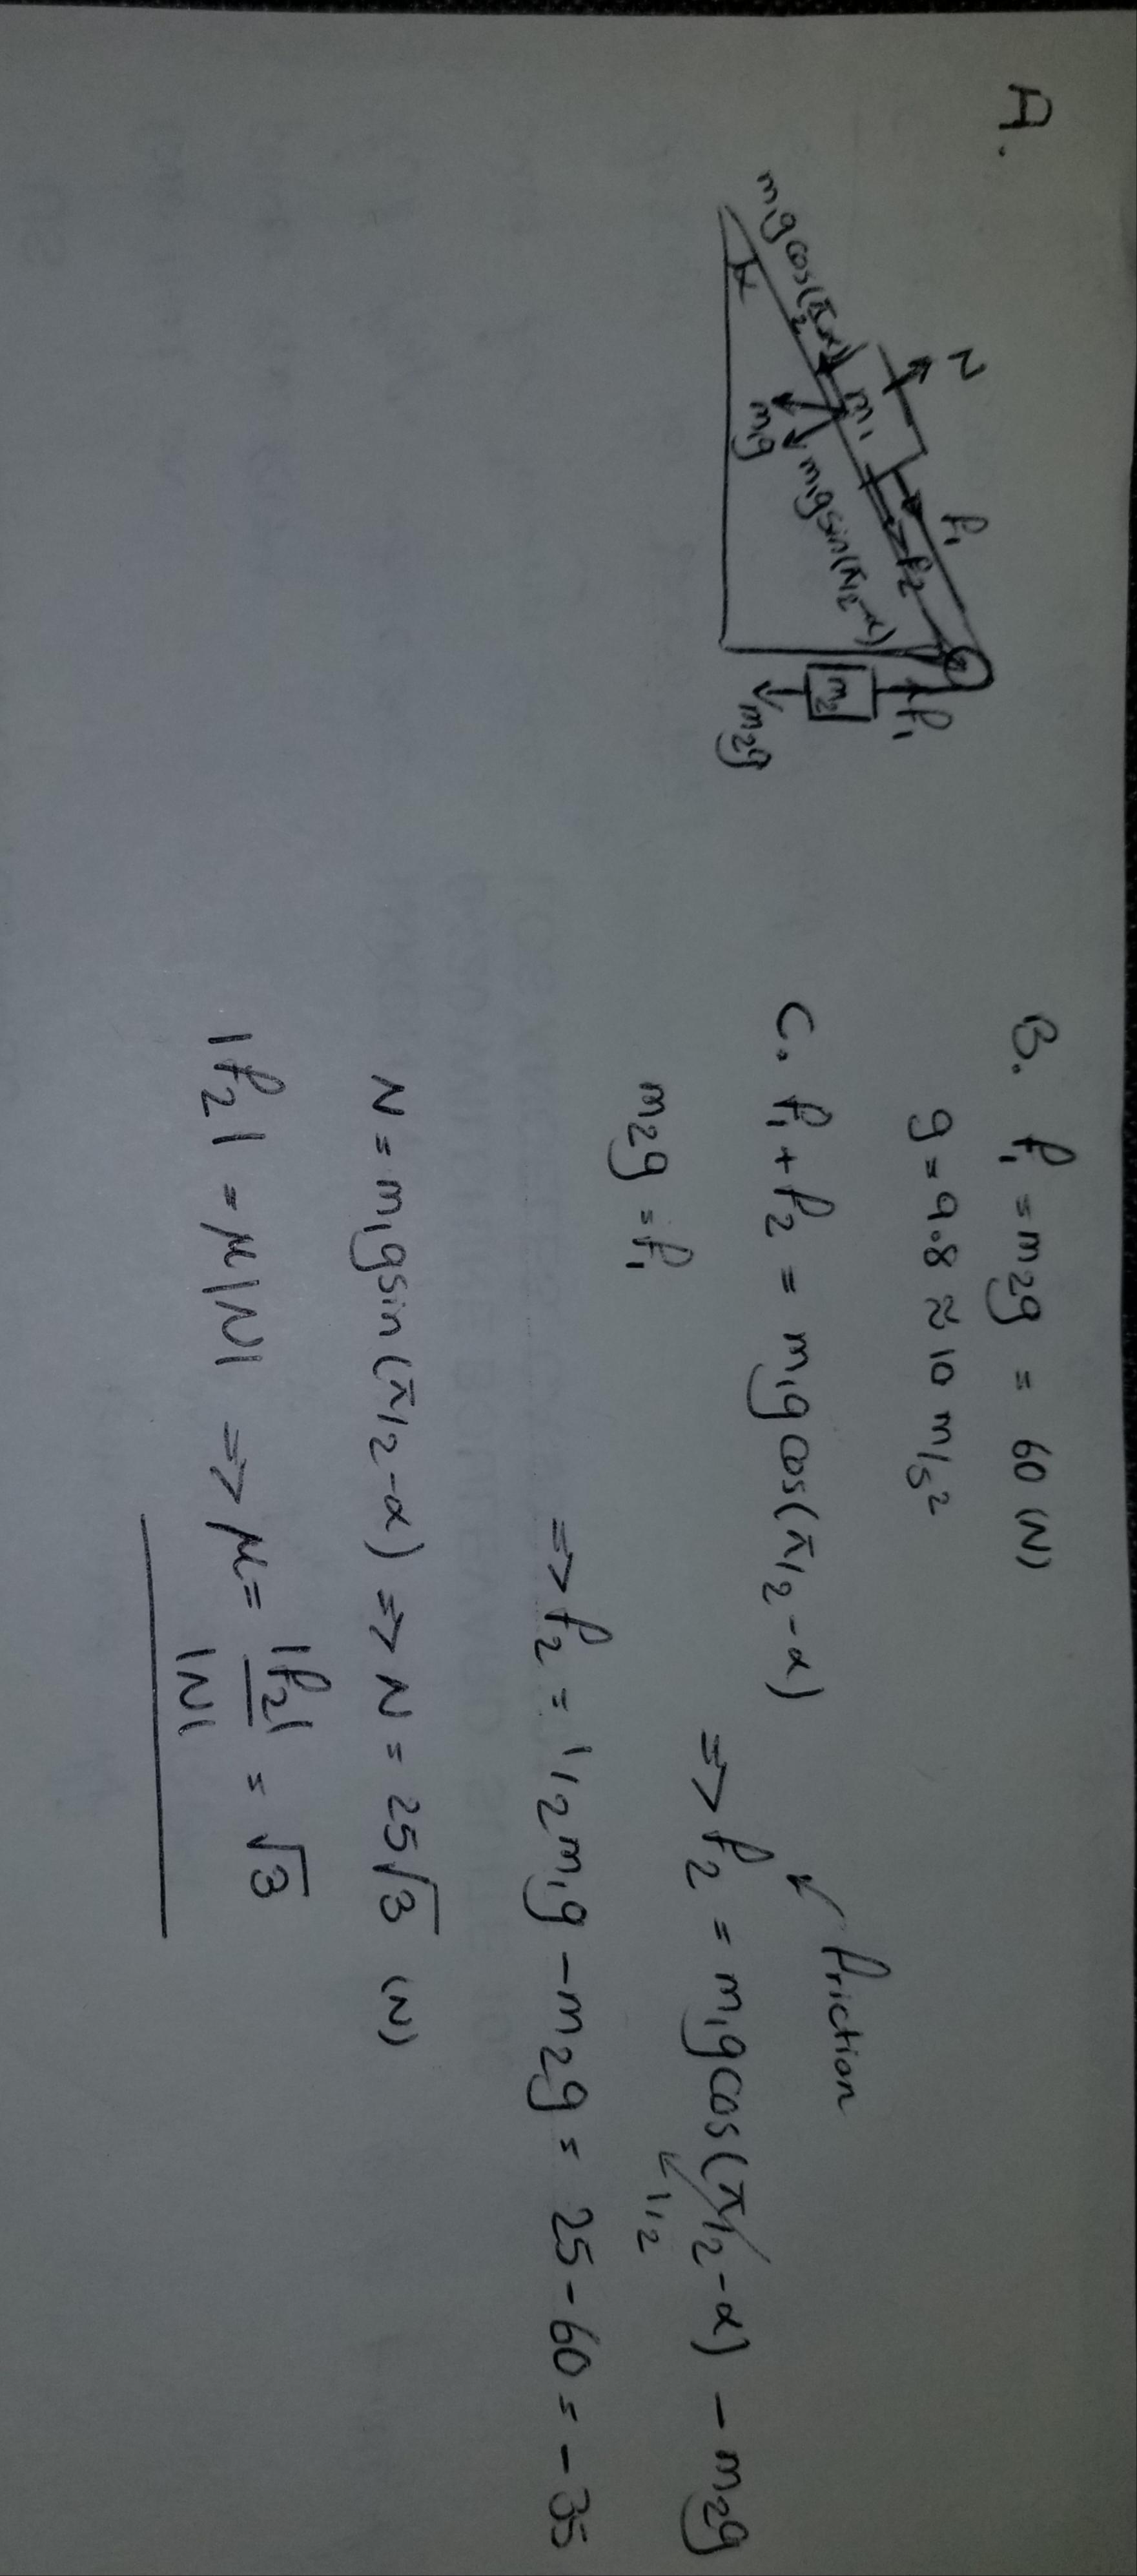 A.
N
f₁
m₁
f₂
m₁g cos(π/2-α)
α
m₁g
m₁g sin(π/2-α)
f₁
m₂
m₂g
B. f₁ = m₂g = 60 (N)
g = 9.8 ≈ 10 m/s²
C. f₁ + f₂ = m₁g cos(π/2 - α)
friction
m₂g = f₁
=> f₂ = m₁g cos(π/2 - α) - m₂g
1/2
=> f₂ = 1/2 m₁g - m₂g = 25 - 60 = - 35
N = m₁g sin(π/2 - α) => N = 25√3 (N)
|f₂| = μ|N| => μ = |f₂|/|N| = √3